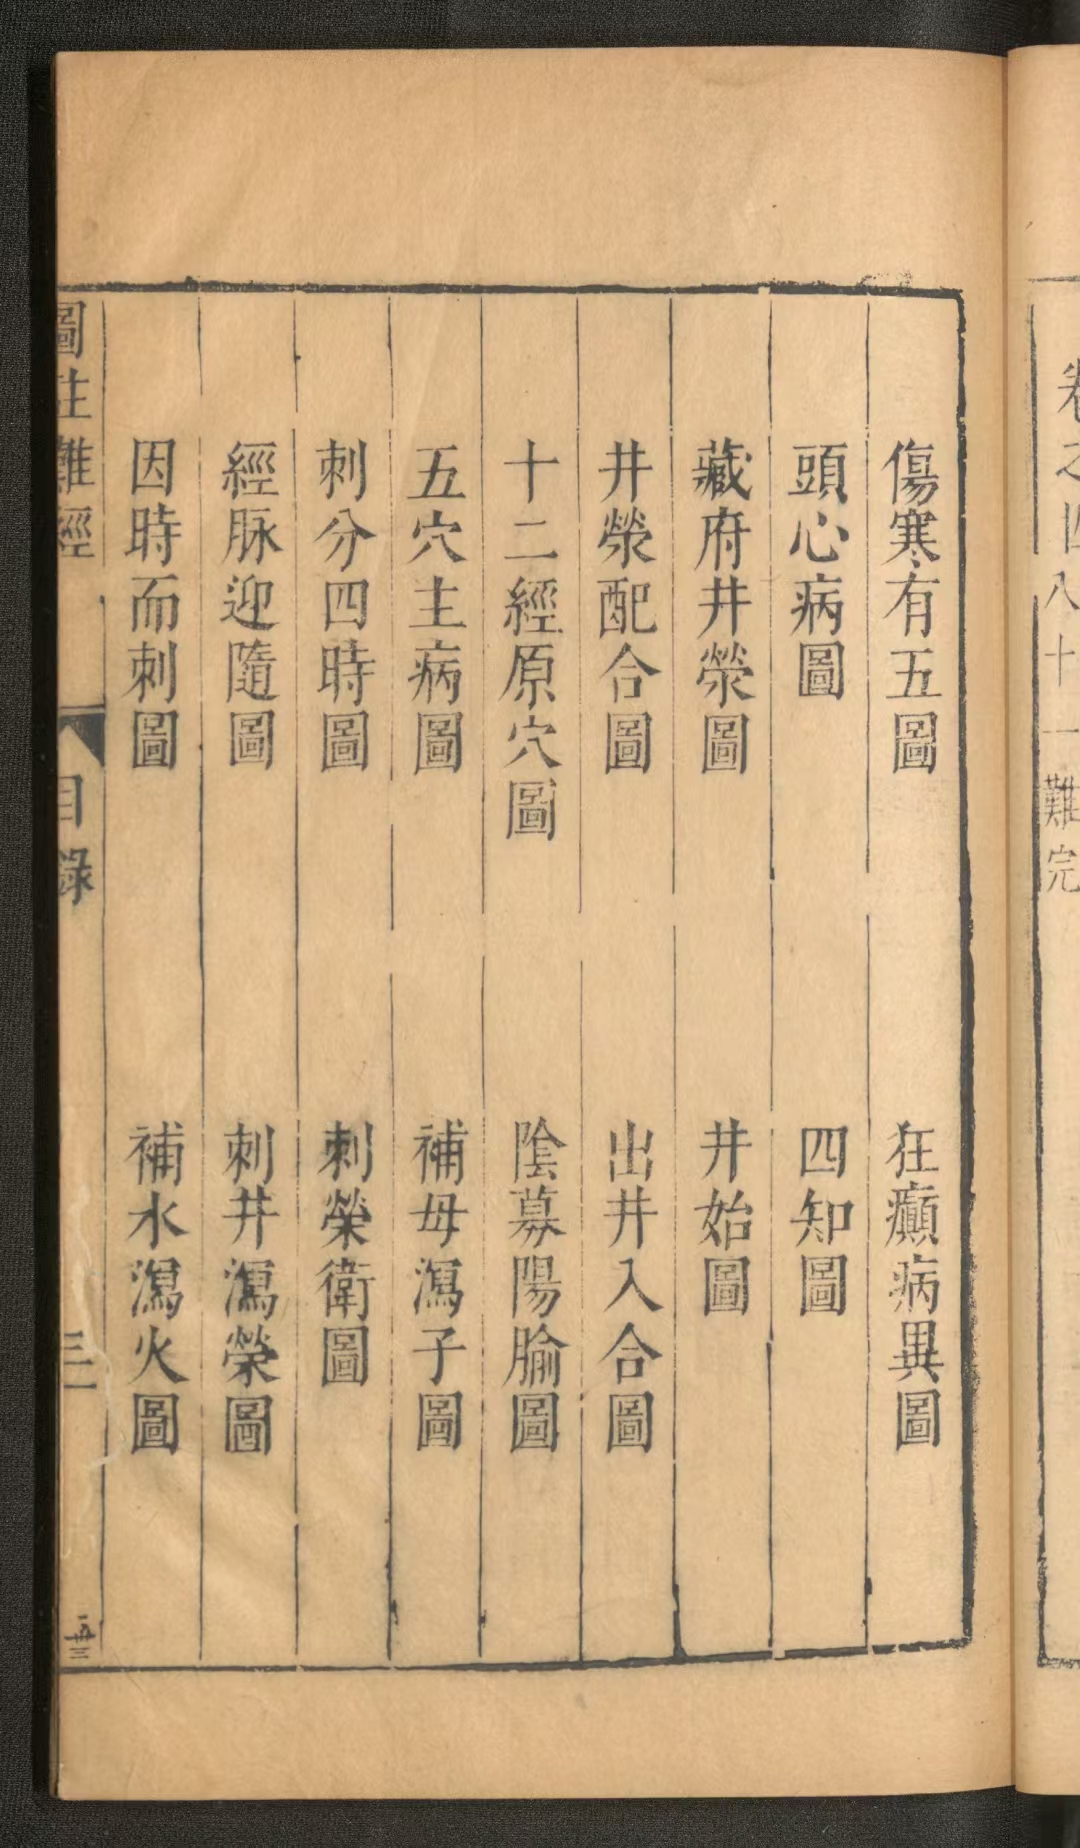 卷之四八十一難完
傷寒有五圖 狂癲病異圖
頭心病圖 四知圖
藏府井滎圖 井始圖
井滎配合圖 出井入合圖
十二經原穴圖 陰募陽腧圖
五穴主病圖 補母瀉子圖
刺分四時圖 刺榮衛圖
經脉迎隨圖 刺井瀉榮圖
因時而刺圖 補水瀉火圖
圖註難經 目錄 三